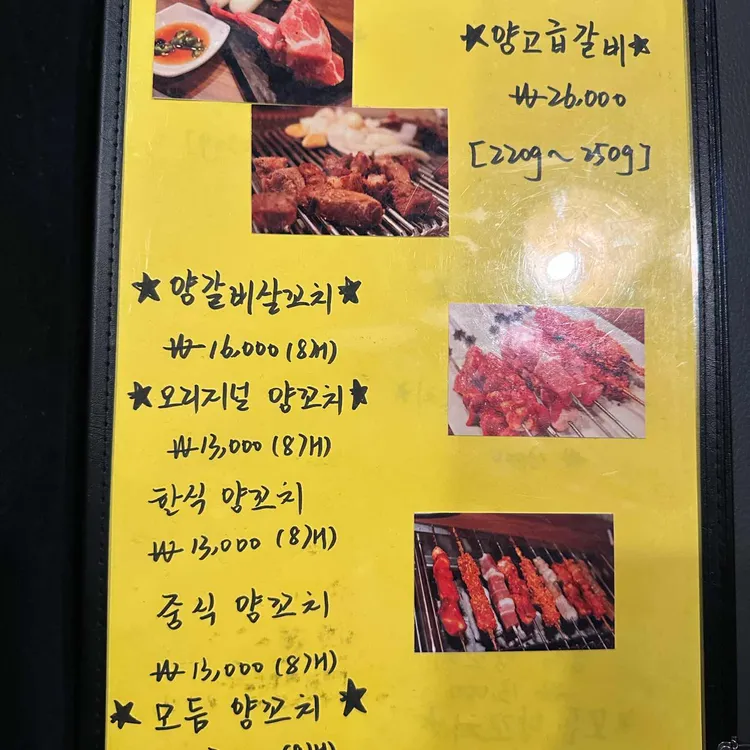 ★양고급갈비★
₩26,000
[220g~250g]
★양갈비살꼬치★
₩16,000(8개)
★오리지널 양꼬치★
₩13,000(8개)
한식 양꼬치
₩13,000(8개)
중식 양꼬치
₩13,000(8개)
★모듬 양꼬치★